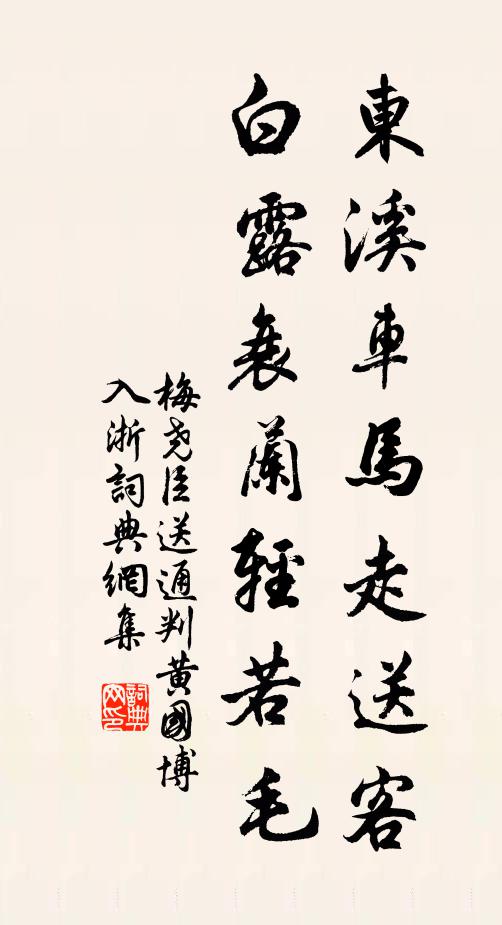 東溪車馬走送客
白露衰蘭輕若毛
梅堯臣送通判黃國博
入浙詞典網集
詞典网印